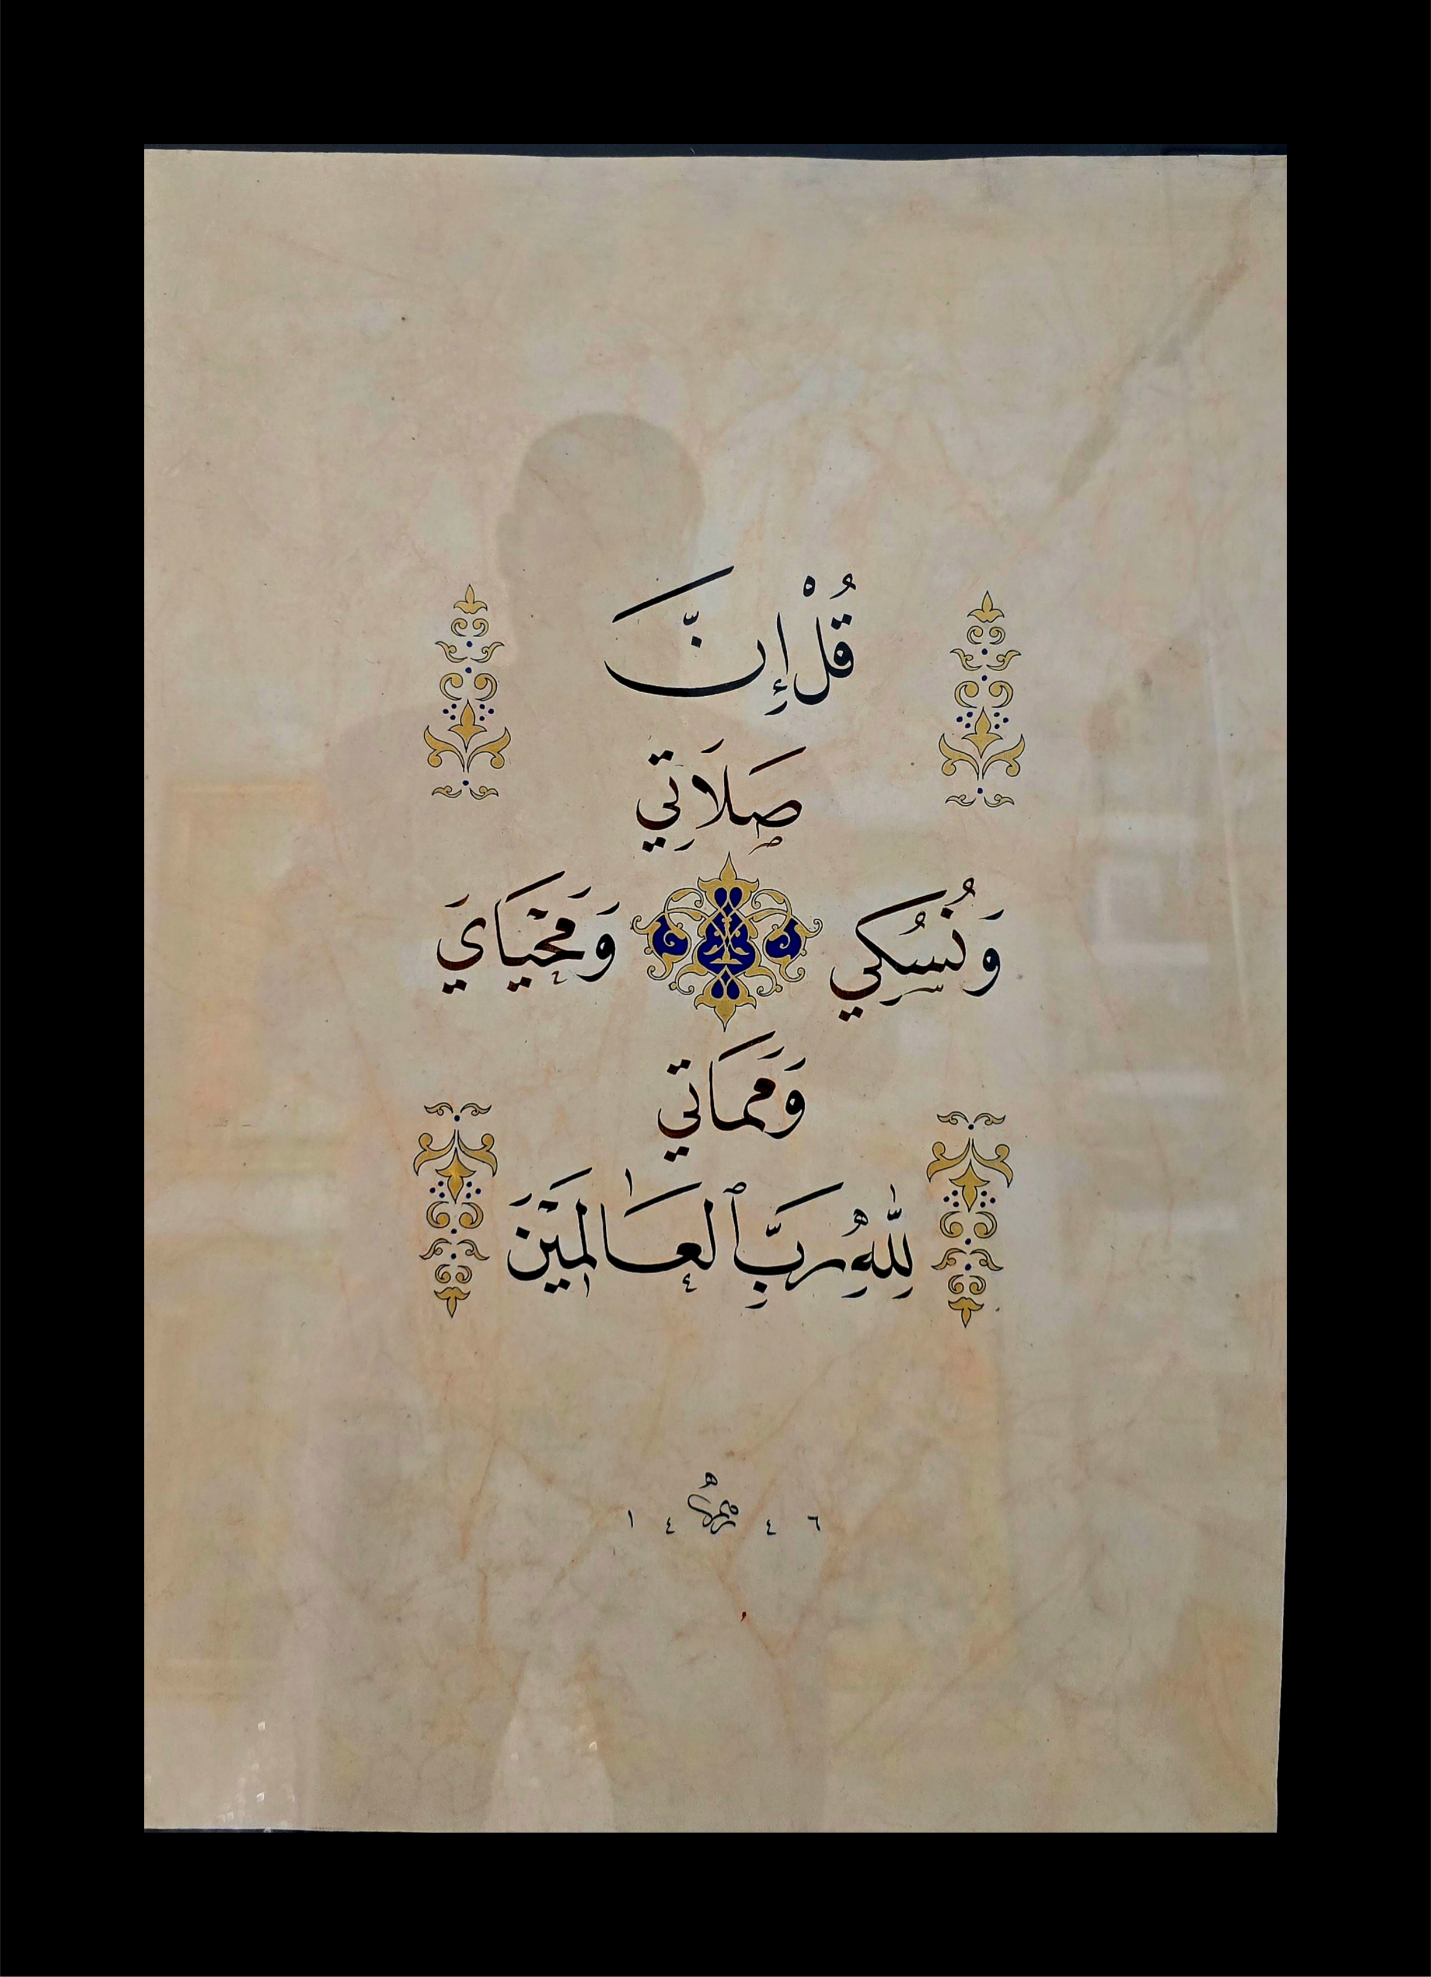 قُلْ إِنَّ
صَلَاتِي
وَنُسُكِي وَمَحْيَايَ
وَمَمَاتِي
لِلَّهِ رَبِّ ٱلْعَالَمِيْنَ
١٤٤٦